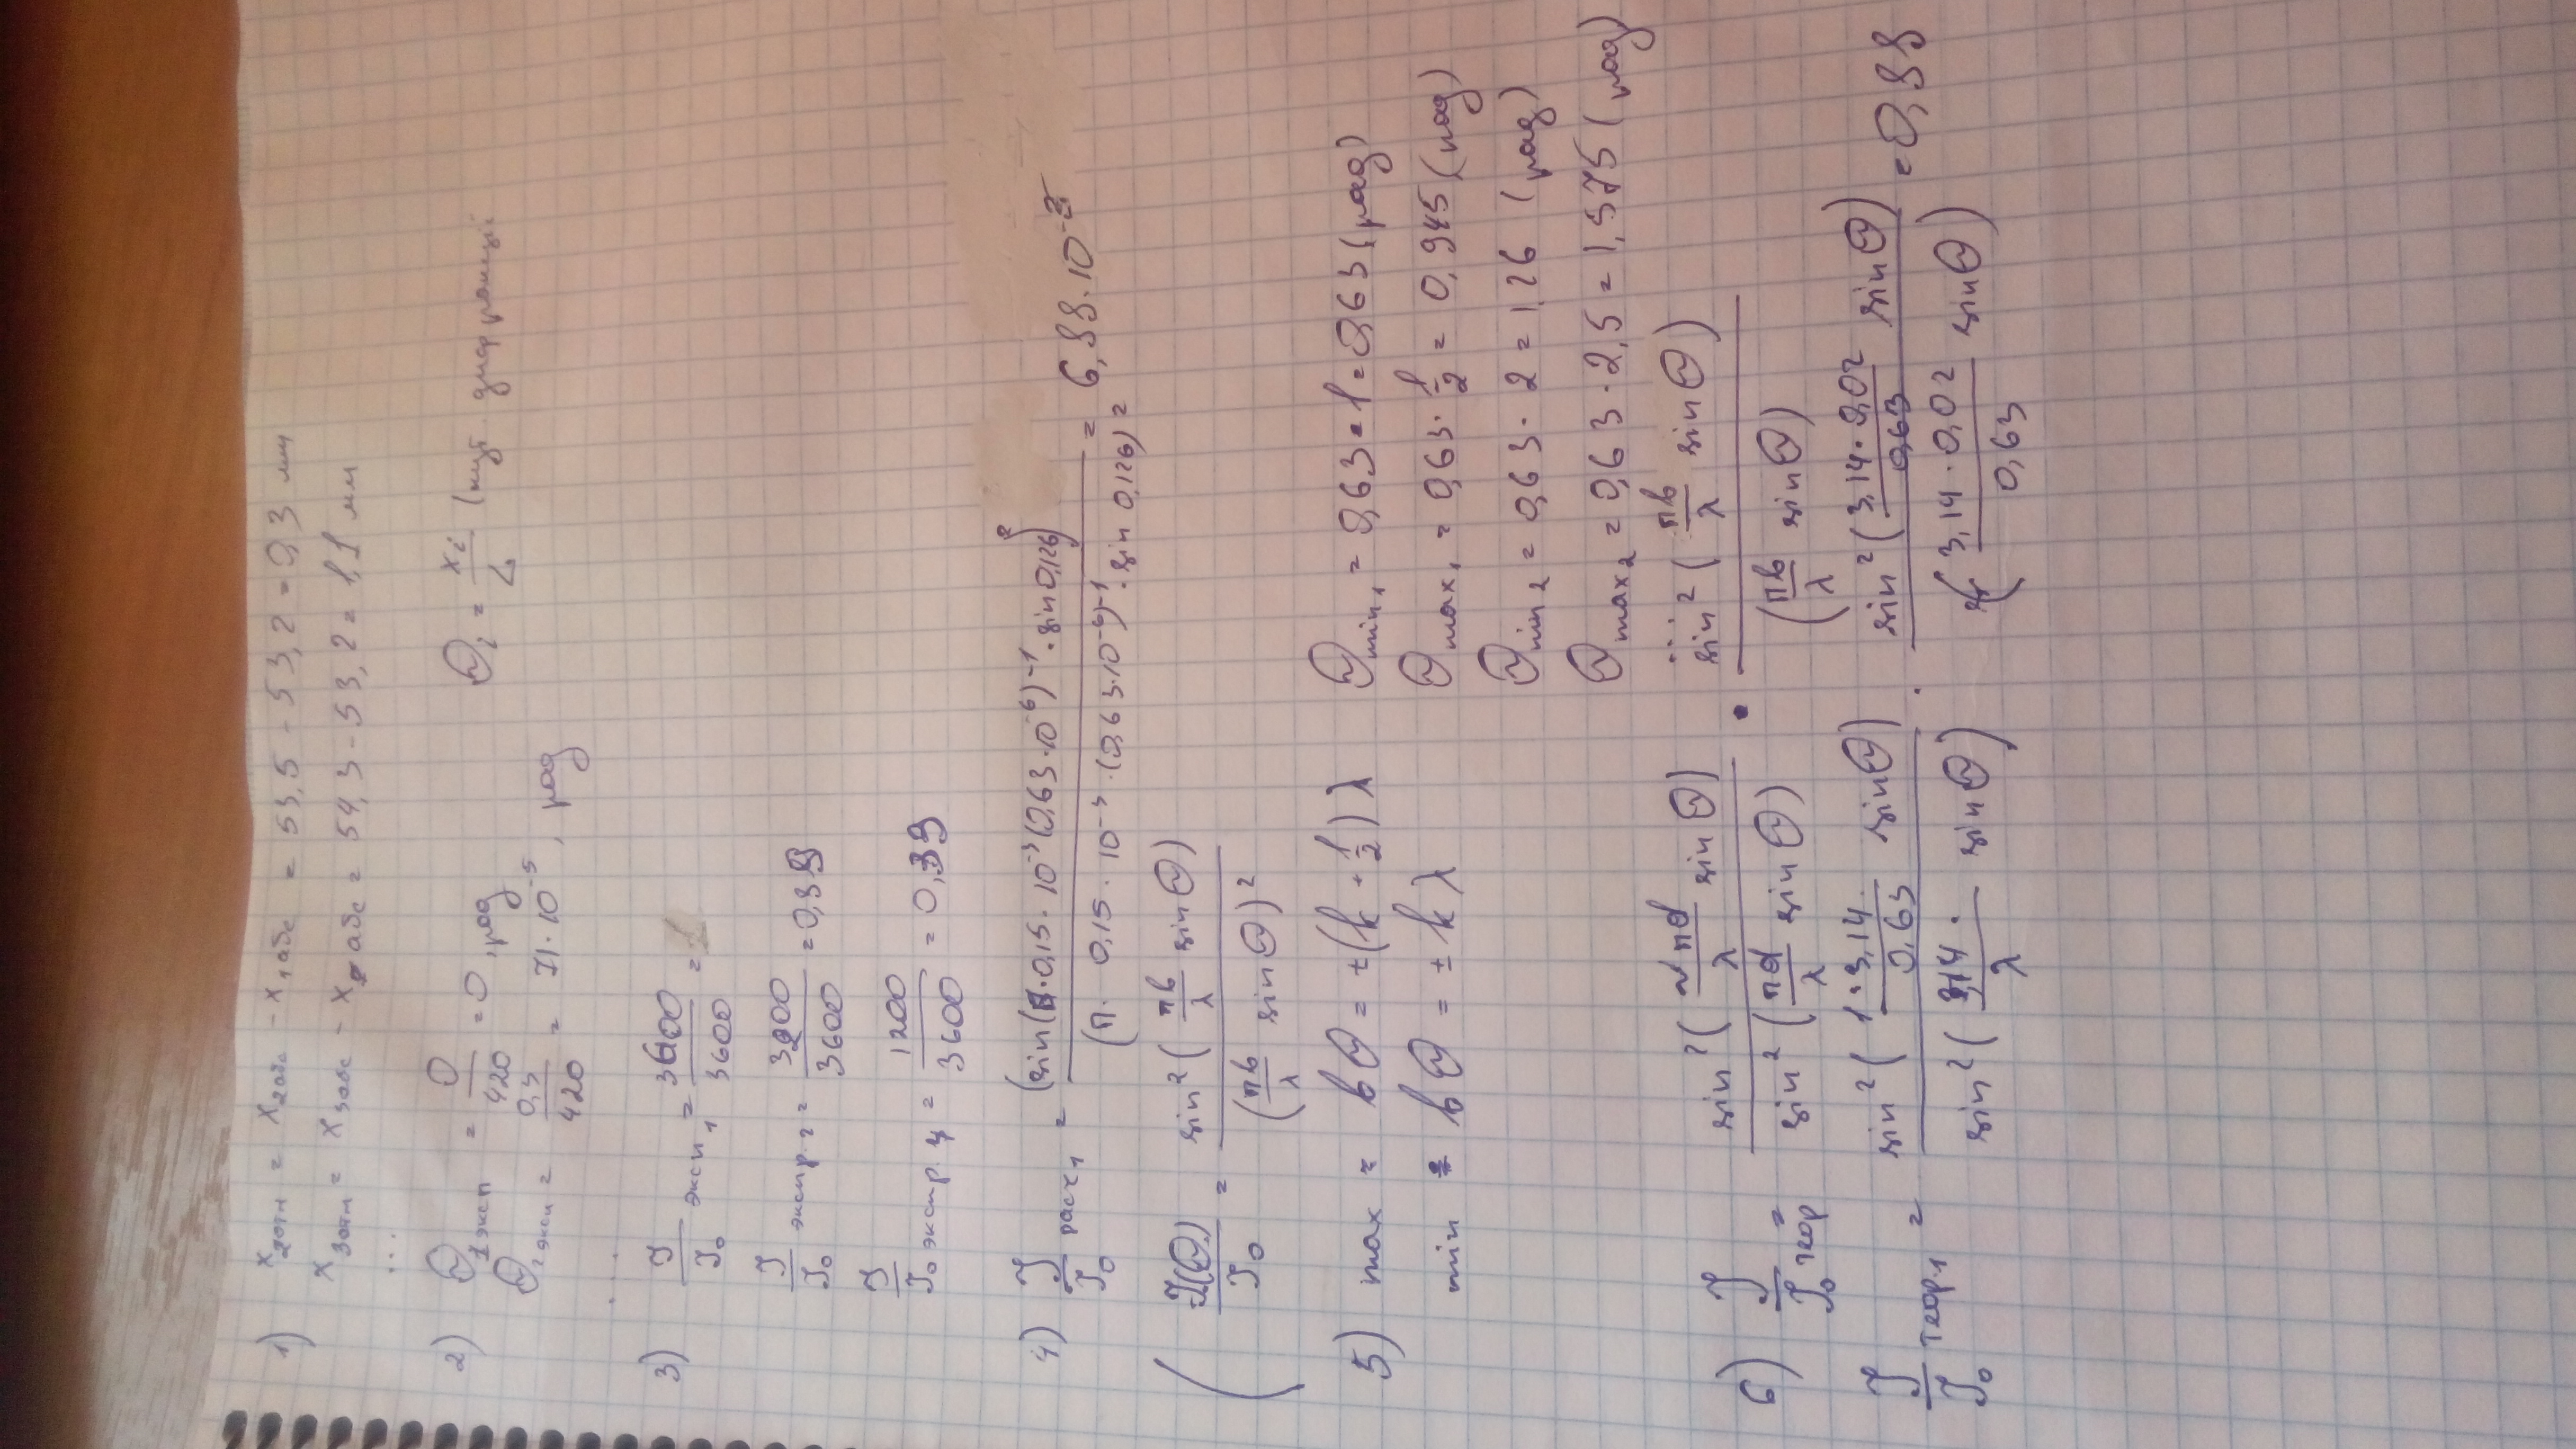 1) x₂отн = x₂абс - x₁абс = 53,5 - 53,2 = 0,3 мм
x₃отн = x₃абс - x₁абс = 54,3 - 53,2 = 1,1 мм
...
2) Θ₁эксп = 0/420 = 0, рад Θi = xi/L (кут дифракції
Θ₂эксп = 0,3/420 = 71·10⁻⁵, рад
...
3) J/J₀ эксп₁ = 3600/3600 = 1
J/J₀ экспр₂ = 3200/3600 = 0,89
J/J₀ экспр.4 = 1200/3600 = 0,33
4) J/J₀ расч₁ = (sin(π·0,15·10⁻³(0,63·10⁻⁶)⁻¹·sin0,126)² / (π·0,15·10⁻³·(0,63·10⁻⁶)⁻¹·sin 0,126)² = 6,88·10⁻³
(J(Θ)/J₀ = sin²(πb/λ sinΘ) / (πb/λ sinΘ)²
5) max = bΘ = ±(k + 1/2)λ Θmin₁ = 0,63·1 = 0,63 (рад)
min = bΘ = ±kλ Θmax₁ = 0,63·1/2 = 0,945 (рад)
Θmin₂ = 0,63·2 = 1,26 (рад)
Θmax₂ = 0,63·2,5 = 1,575 (рад)
...
6) J/J₀ теор = sin²(Nπd/λ sinΘ) / sin²(πd/λ sinΘ) · sin²(πb/λ sinΘ) / (πb/λ sinΘ)
J/J₀ теор₁ = sin²(1·3,14/0,63 sinΘ) / sin²(3,14·/λ sinΘ) · sin²(3,14·0,02/0,63 sinΘ) / (3,14·0,02/0,63 sinΘ) = 0,88